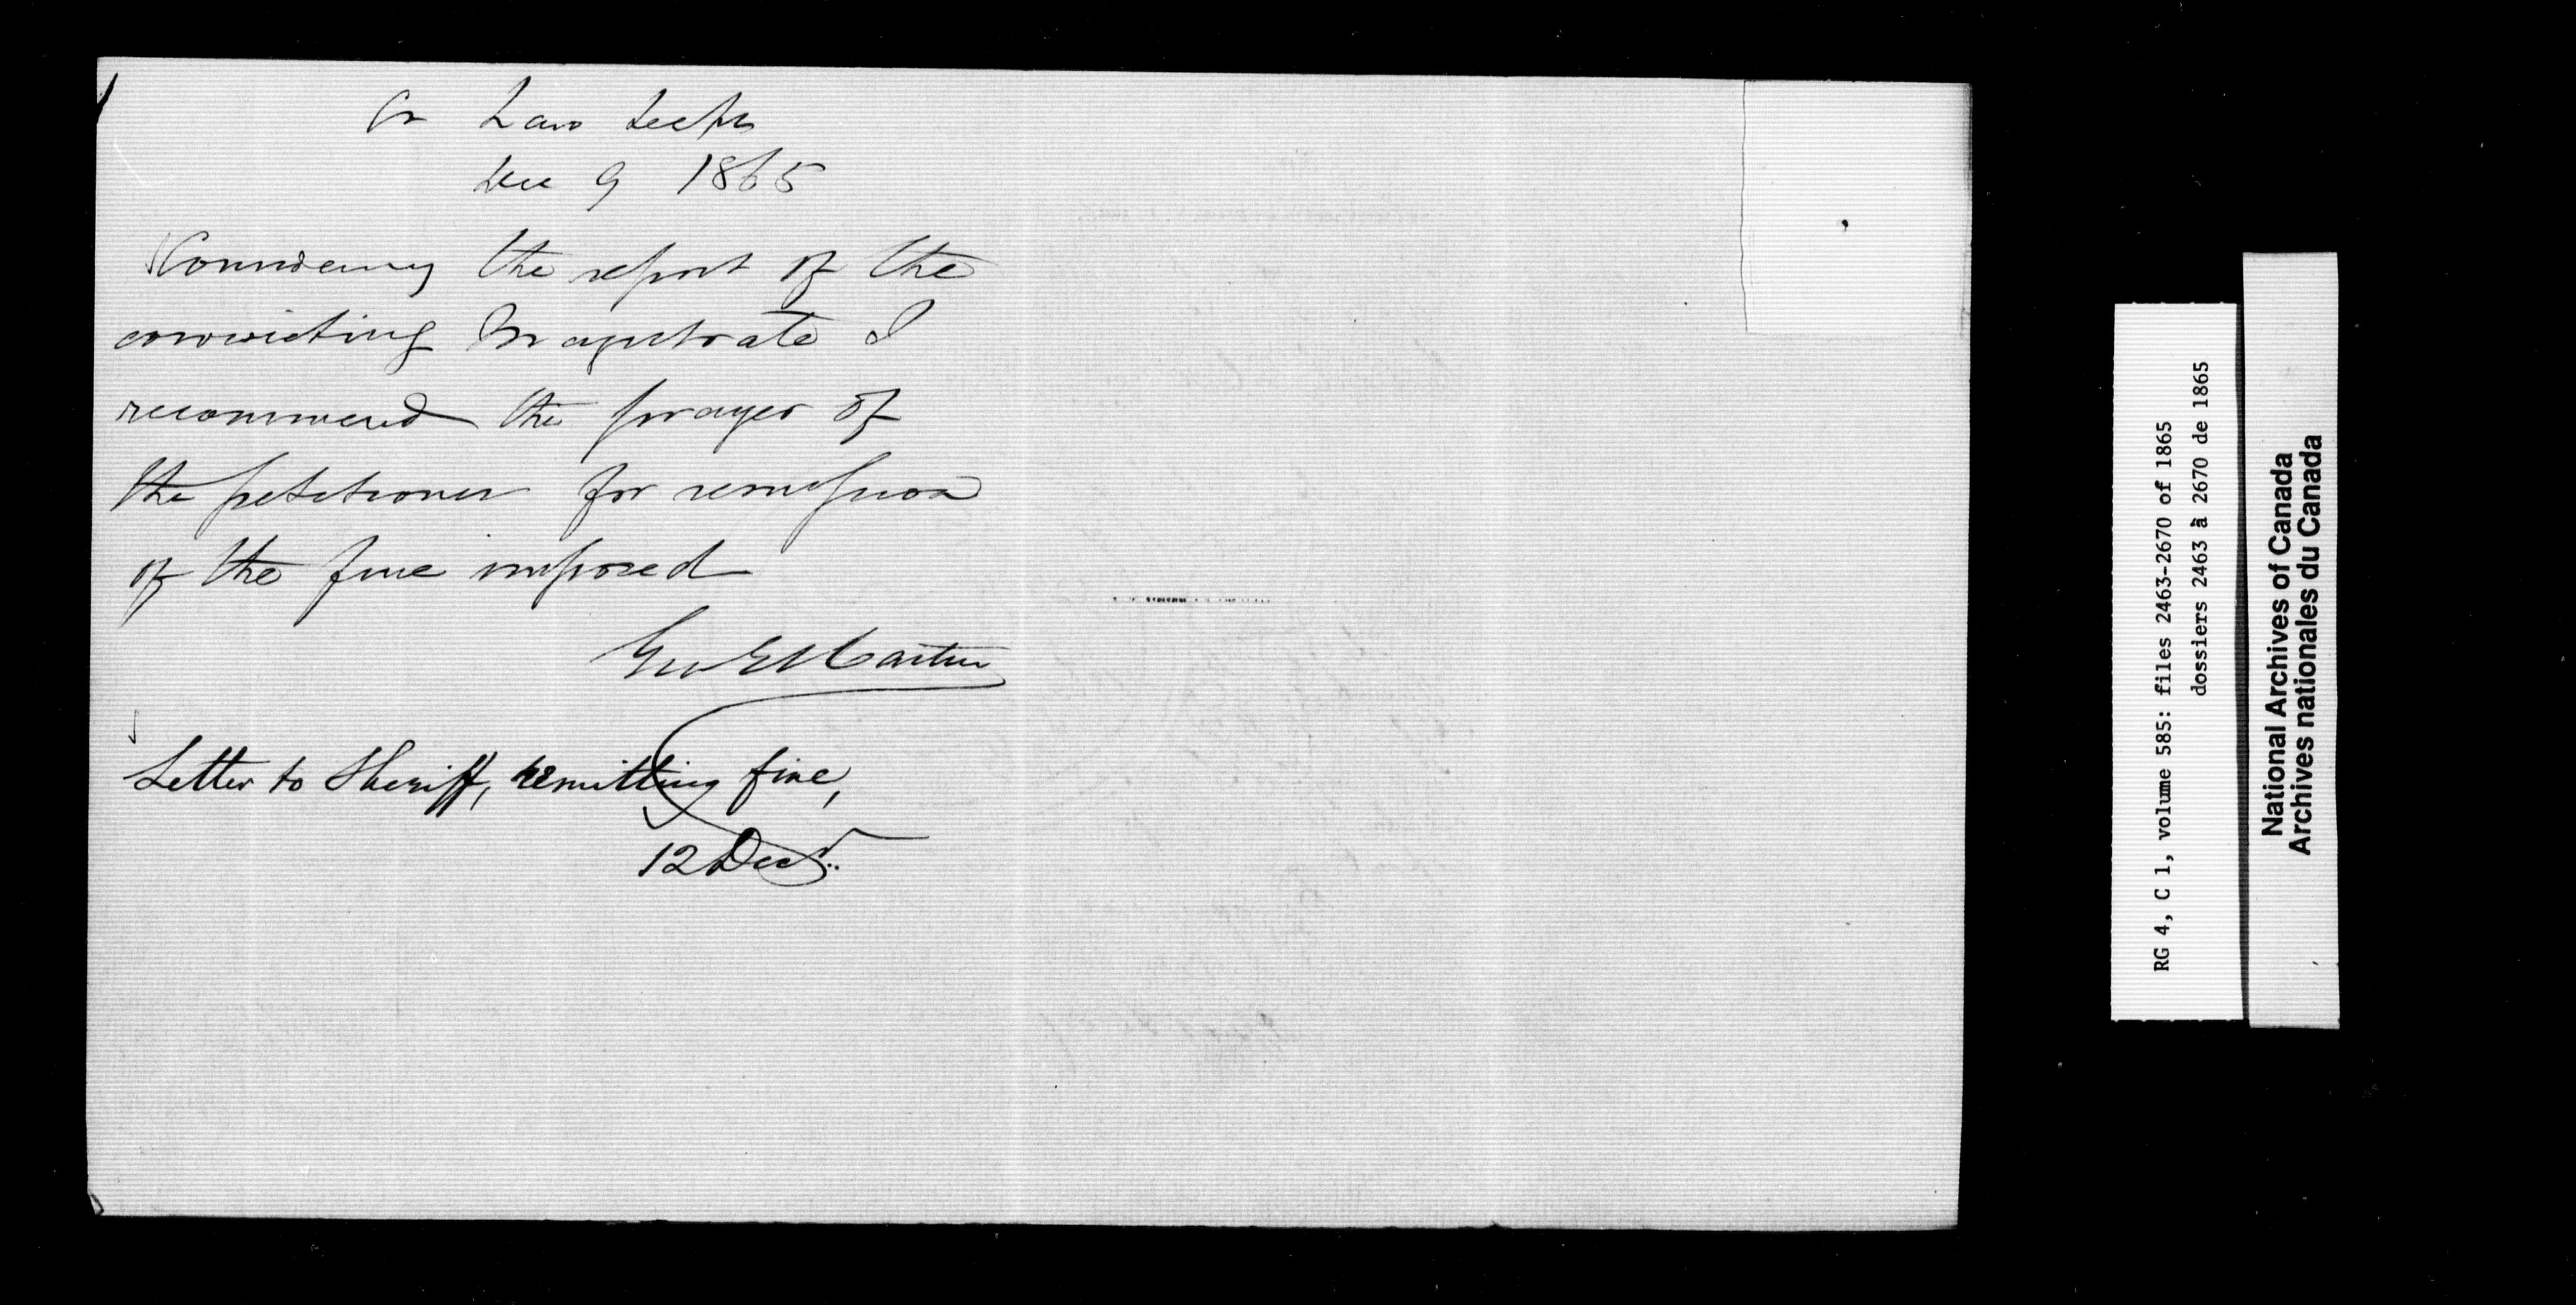 Cr Law Dept
Dec 9 1865
Considering the report of the
convicting Magistrate I
recommend the prayer of
the petitioner for remission
of the fine imposed
Geo E Cartier
Letter to Sheriff, remitting fine,
12 Decr.
RG 4, C 1, volume 585: files 2463-2670 of 1865
dossiers 2463 à 2670 de 1865
National Archives of Canada
Archives nationales du Canada